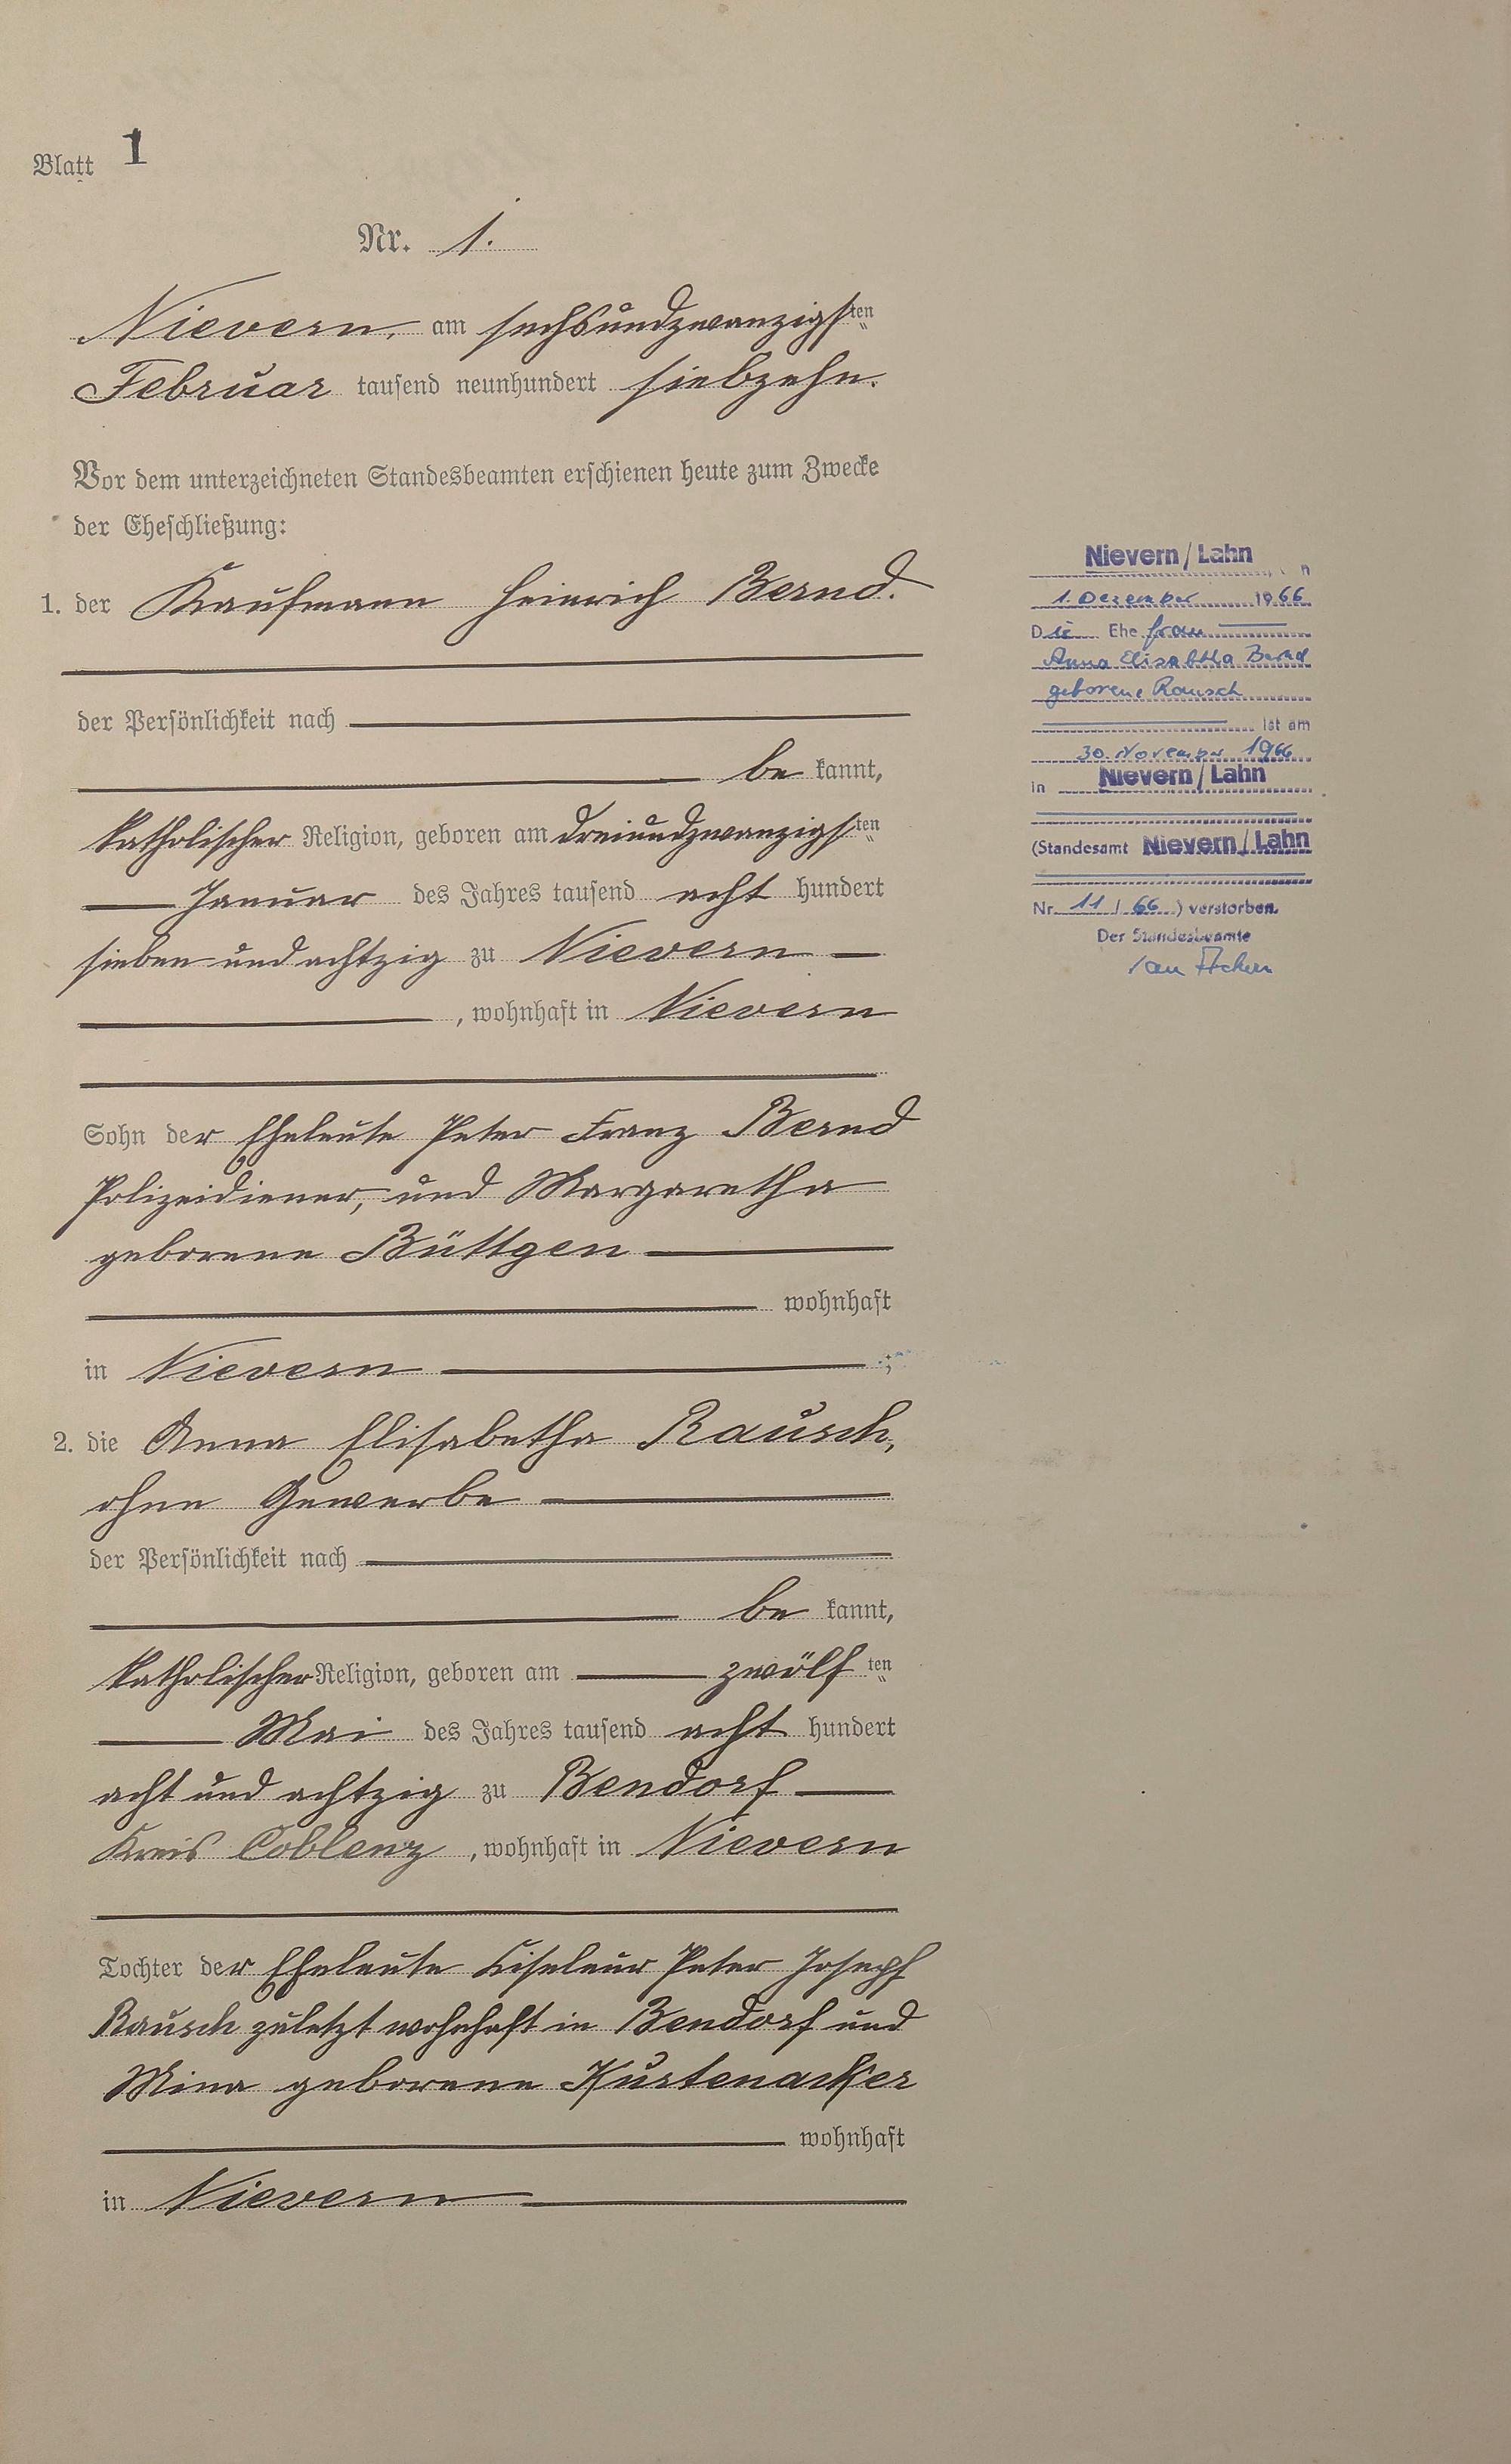 Blatt 1
Nr. 1.
Nievern, am sechsundzwanzigsten
Februar tausend neunhundert siebzehn.
Vor dem unterzeichneten Standesbeamten erschienen heute zum Zwecke
der Eheschließung:
1. der Kaufmann Heinrich Bernd.
der Persönlichkeit nach
be kannt,
katholischer Religion, geboren am dreiundzwanzigsten
Januar des Jahres tausend acht hundert
sieben und achtzig zu Nievern
, wohnhaft in Nievern
Sohn der Eheleute Peter Franz Bernd
Polizeidiener, und Margaretha
geborene Büttgen
wohnhaft
in Nievern ;
2. die Anna Elisabetha Rausch,
ohne Gewerbe
der Persönlichkeit nach
be kannt,
katholischer Religion, geboren am zwölf ten
Mai des Jahres tausend acht hundert
acht und achtzig zu Bendorf
Kreis Coblenz, wohnhaft in Nievern
Tochter der Eheleute Ciseleur Peter Joseph
Rausch zuletzt wohnhaft in Bendorf und
Mina geborene Kurtenacker
wohnhaft
in Nievern
Nievern/Lahn
1. Dezember 1966
Die Ehefrau
Anna Elisabtha Bernd
geborene Rausch
ist am
30. November 1966
in Nievern/Lahn
(Standesamt Nievern/Lahn
Nr. 11 / 66 ) verstorben.
Der Standesbeamte